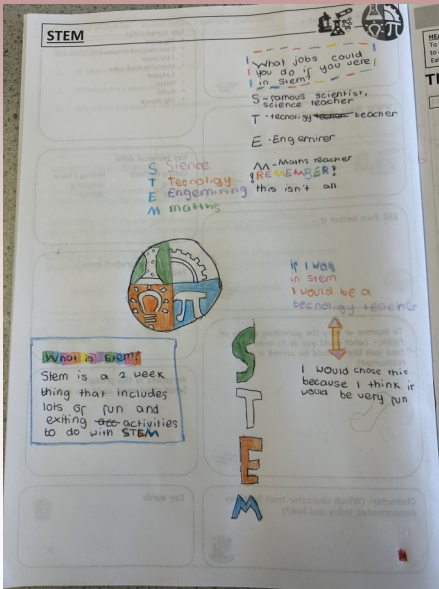 STEM
What jobs could
you do if you were
in stem?
S - famous scientist,
science teacher
T - tecnoligy teacher
E - Engeminer
M - Maths teacher
!REMEMBER!
this isn't all
S Sience
T Tecnoligy
E Engemining
M maths
π
if I was
in stem
I would be a
tecnology teacher
I would chose this
because I think it
would be very fun
What is stem?
Stem is a 2 week
thing that includes
lots of fun and
exiting activities
to do with STEM
S
T
E
M